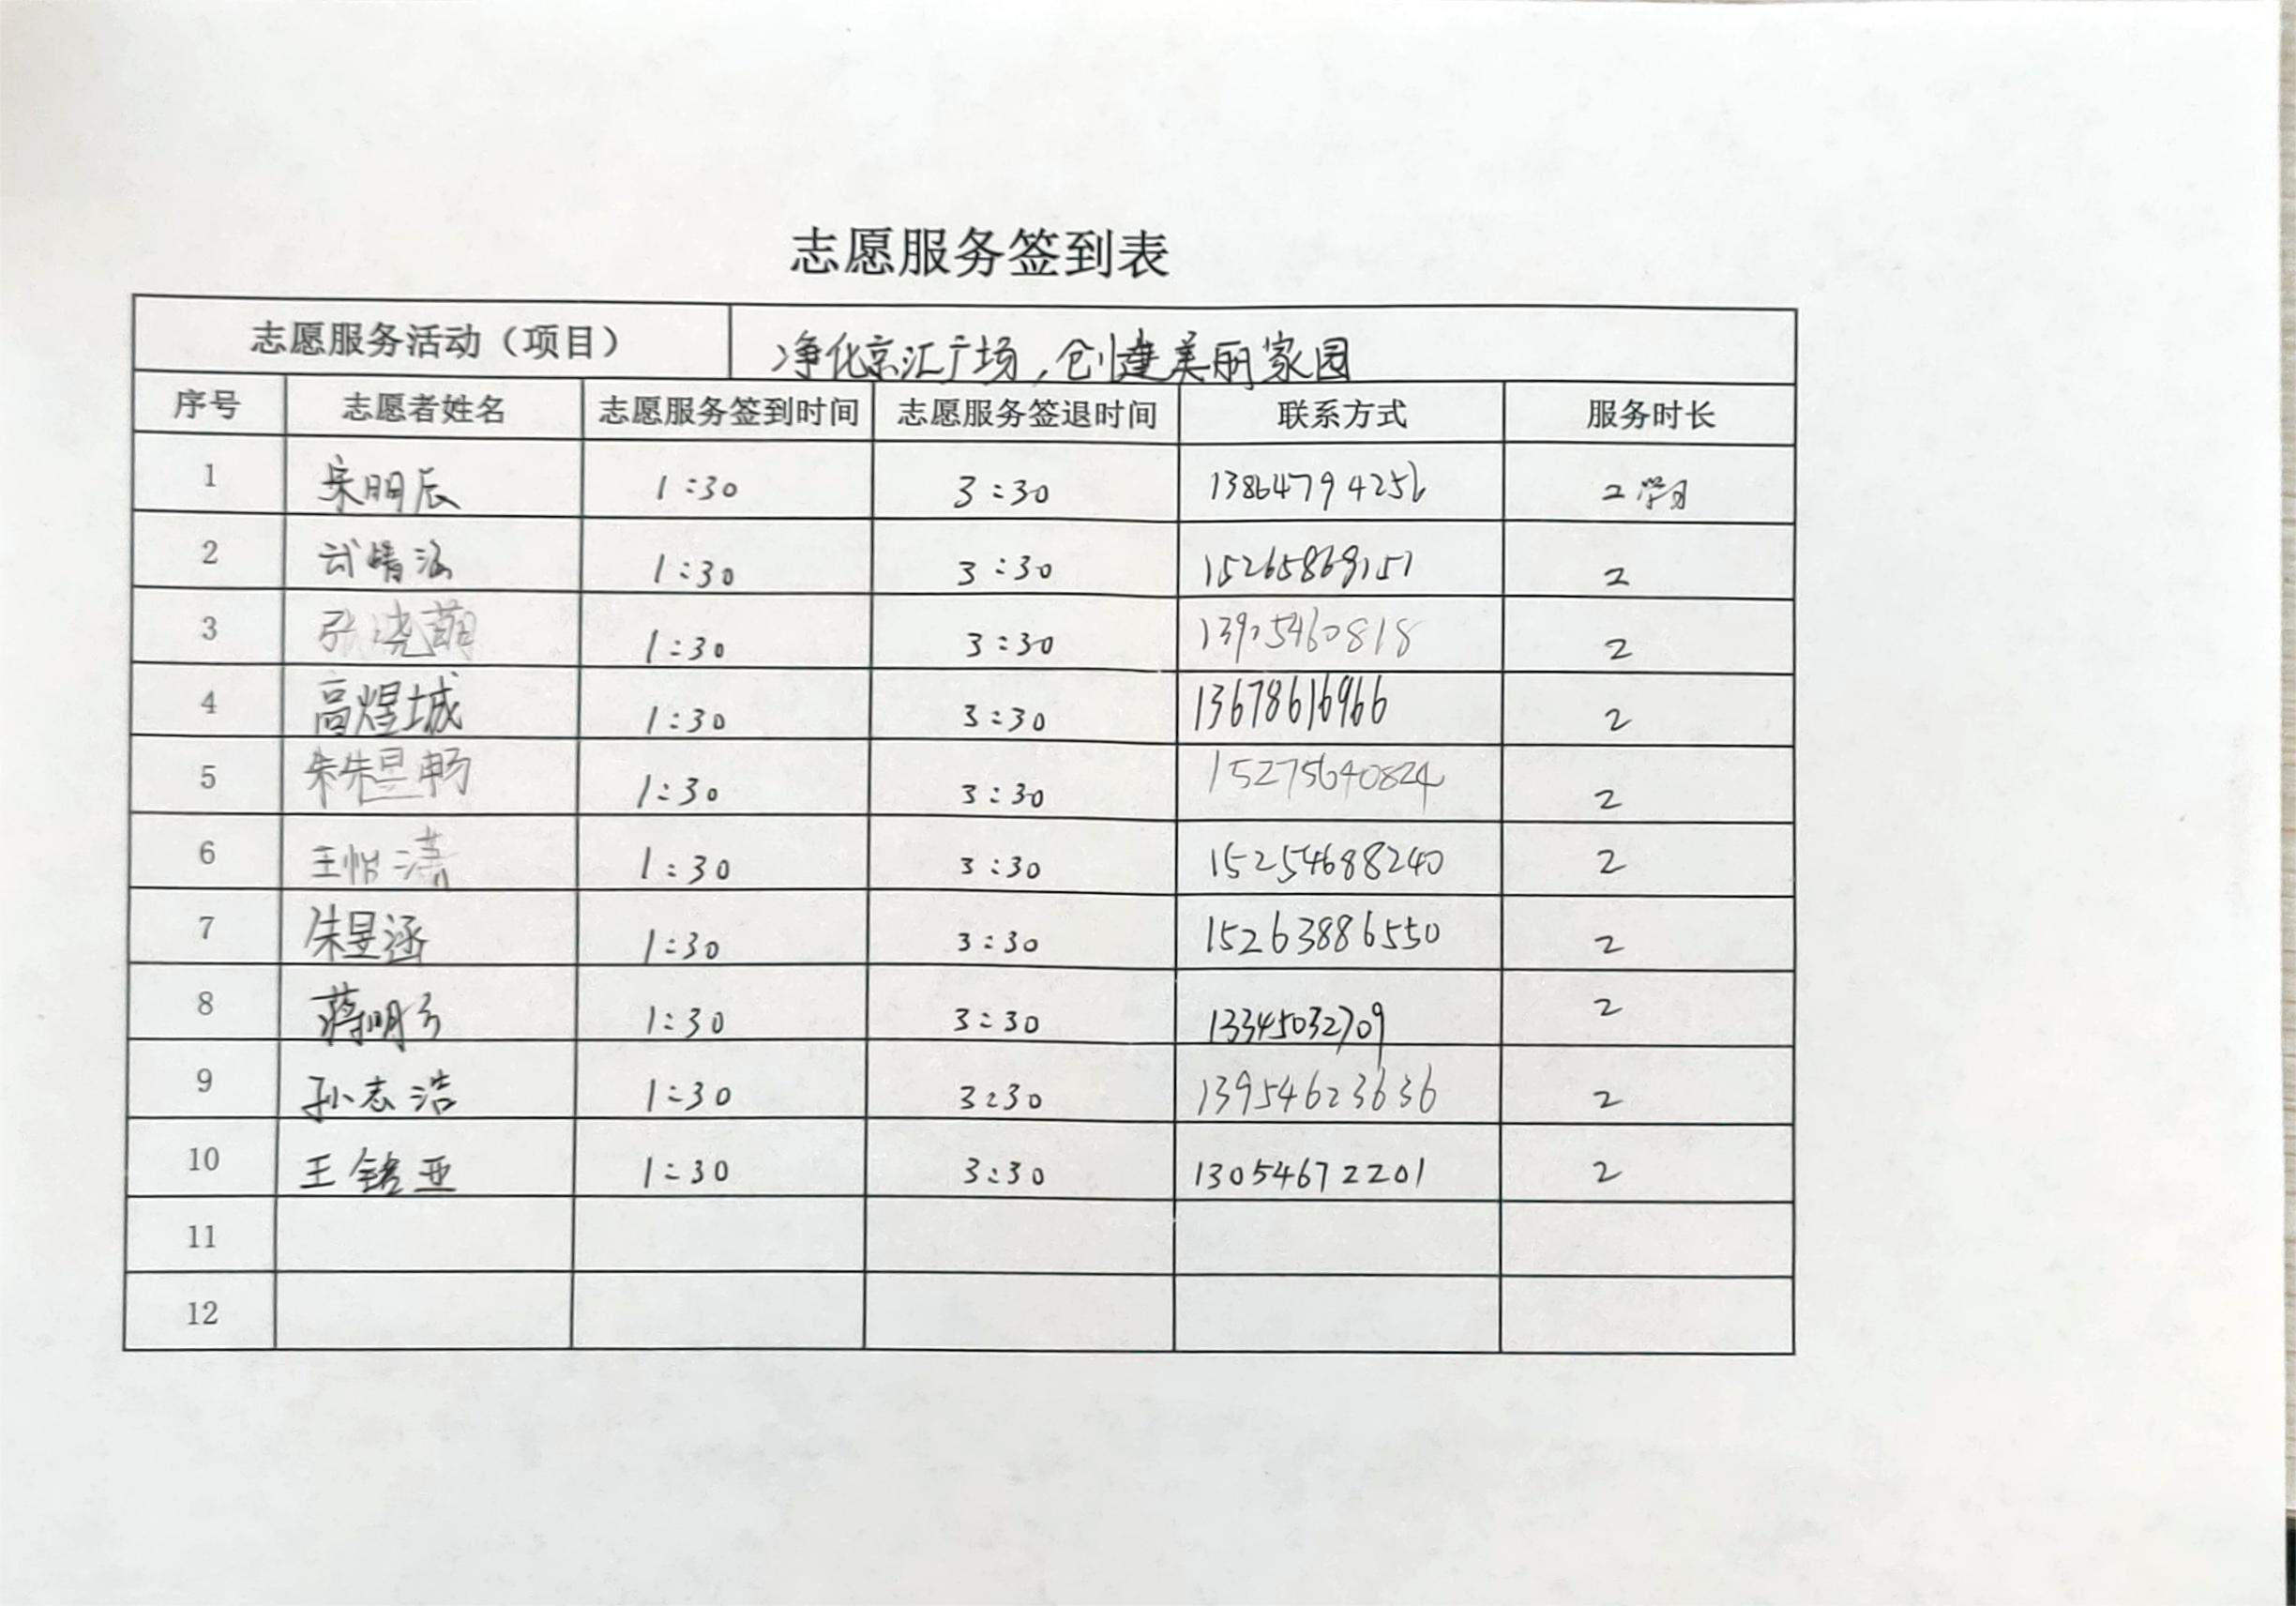 志愿服务签到表
志愿服务活动（项目） 净化京汇广场，创建美丽家园
序号 志愿者姓名 志愿服务签到时间 志愿服务签退时间 联系方式 服务时长
1 宋明辰 1:30 3:30 13864794256 2
2 武晴涵 1:30 3:30 15265869151 2
3 张晓萌 1:30 3:30 13905460818 2
4 高煜城 1:30 3:30 13678616966 2
5 1:30 3:30 15275640824 2
6 王怡潇 1:30 3:30 15254688240 2
7 朱昱涵 1:30 3:30 15263886550 2
8 1:30 3:30 13345032709 2
9 孙志浩 1:30 3:30 13954623636 2
10 王铭亚 1:30 3:30 13054672201 2
11
12